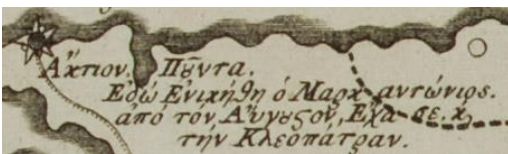 Ἄκτιον. Ποῦντα.
Εδῶ Ενικήθη ὁ Μαρκ αντώνιος.
από τον Αὔγουςον, Εἴχασε. κ̀
τὴν Κλεοπάτραν.